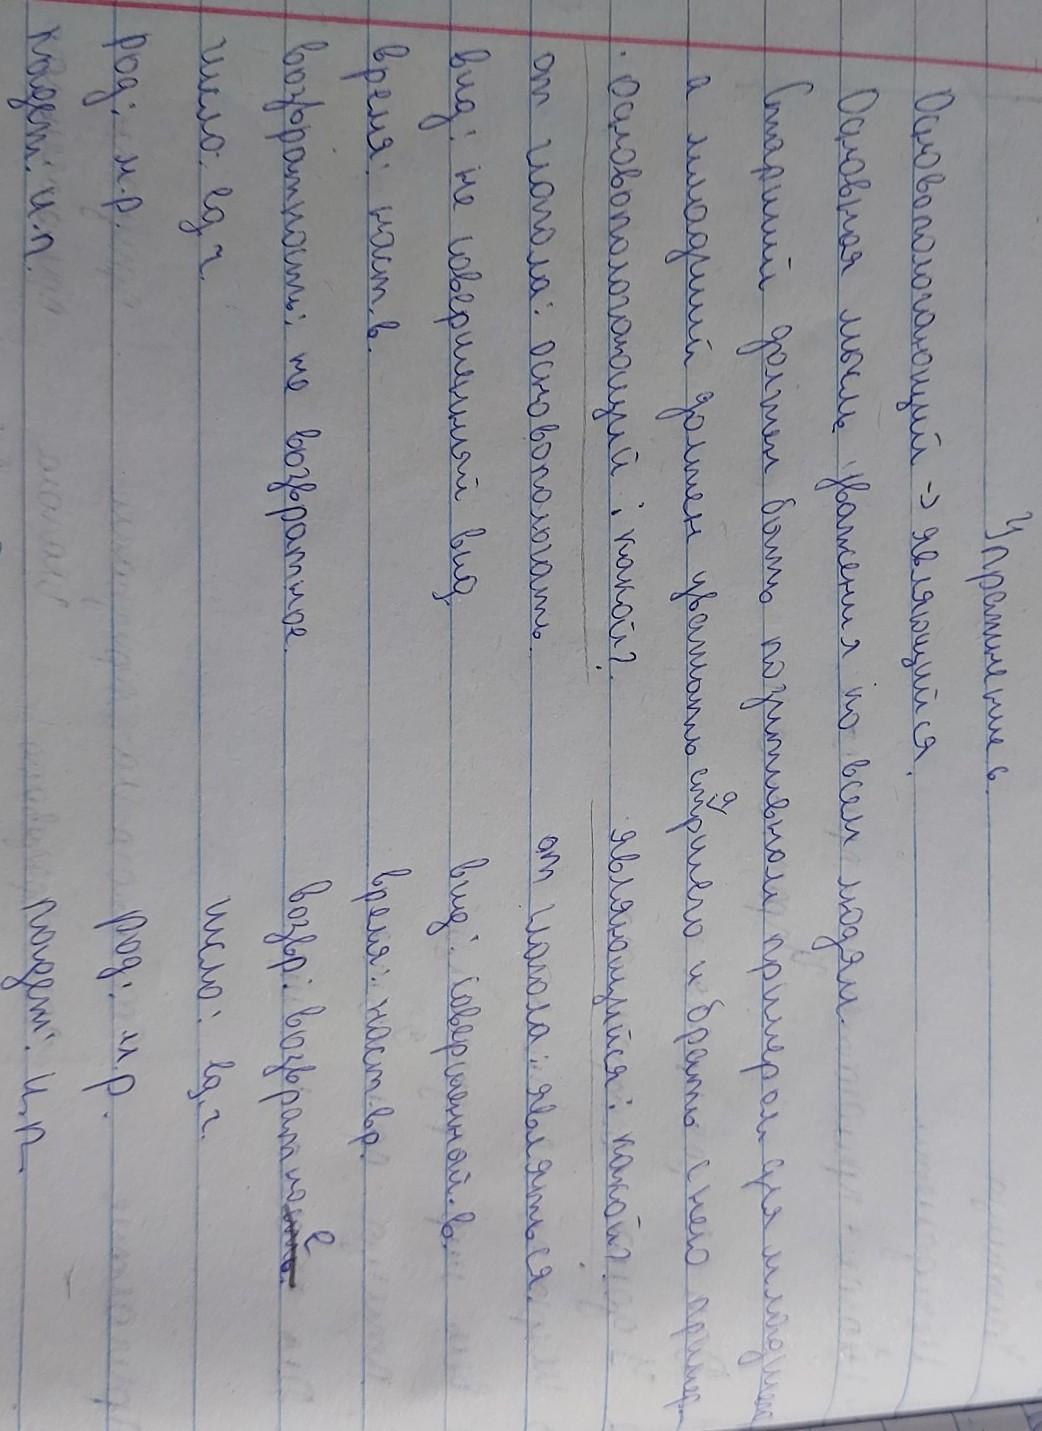 Упражнение 6.
Основопологающий -> являющийся.
Основная мысль уважения ко всем людям.
Старший должен быть позитивном примером для младших
а младший должен уважать старшего и брать с него пример.
Основопологающий: какой? являющийся: какой?
от глагола: основопологать. от глагола: являться.
вид: не совершенный вид. вид: совершенной.в.
время: наст.в. время: наст.вр.
возвратность: не возвратное. возвр: возвратное
число: ед.ч. число: ед.ч.
род: м.р. род: м.р.
падеж: и.п. падеж: И.п.